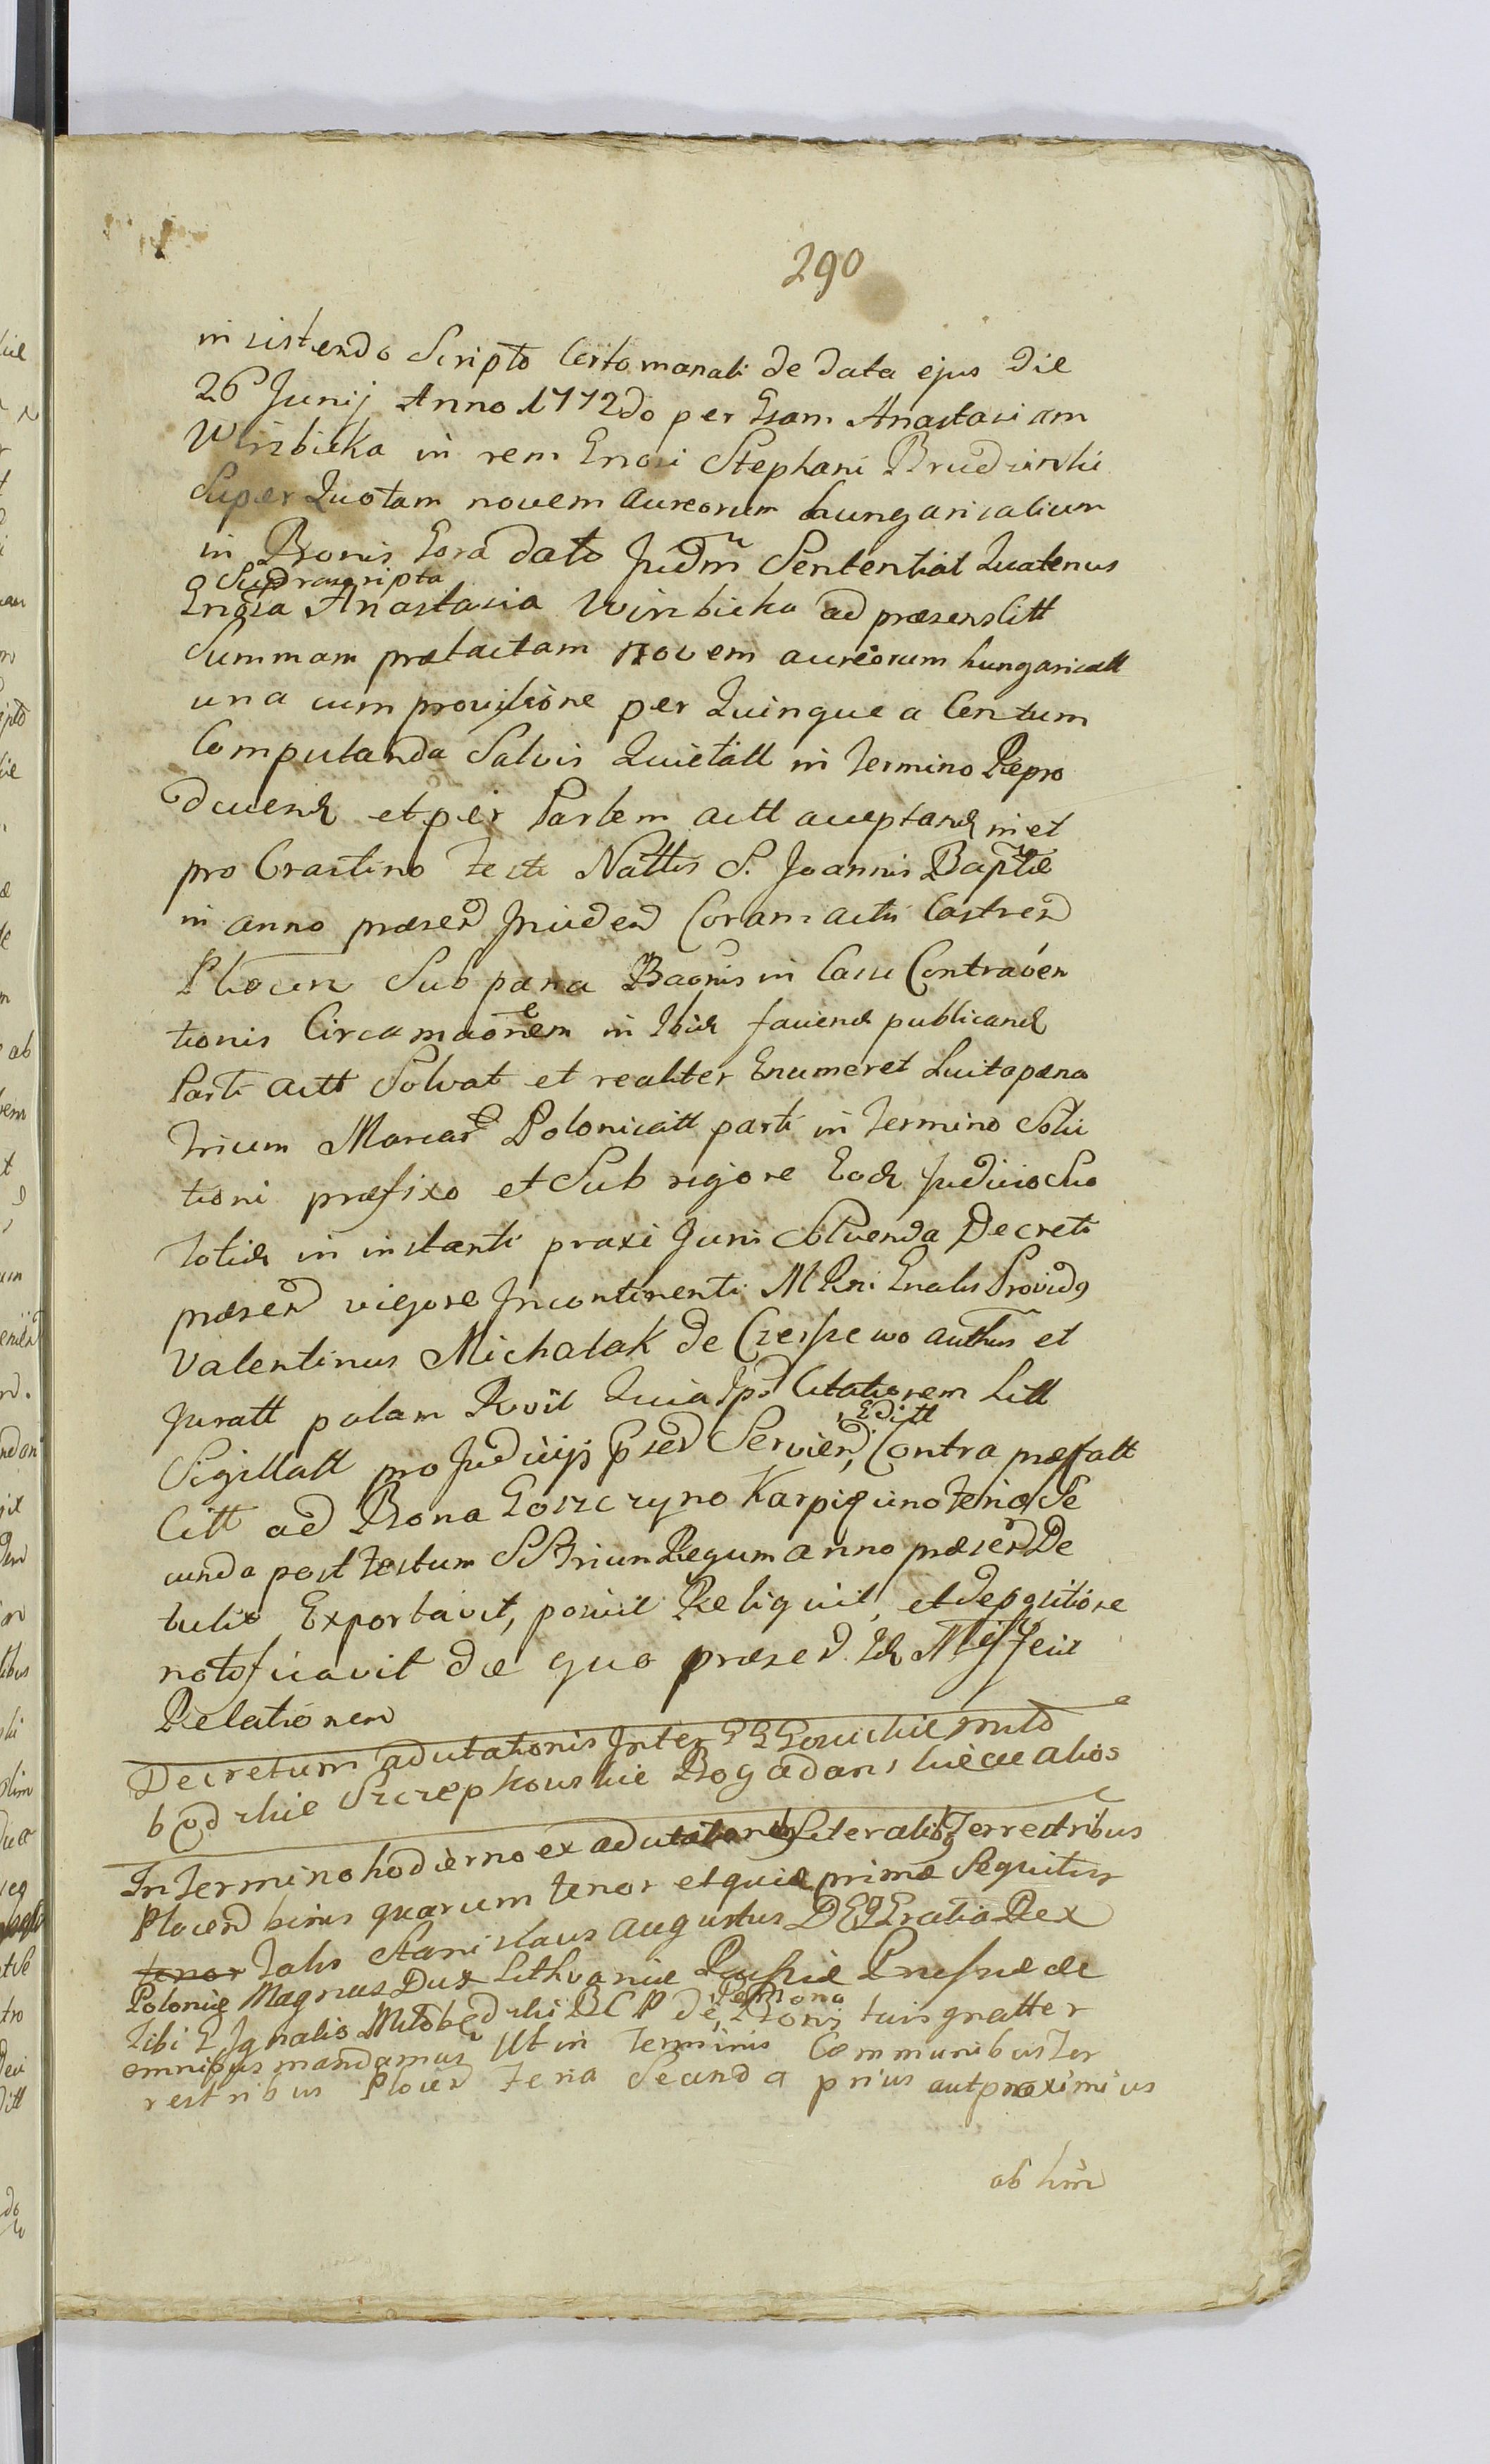 290
insistendo Scripto Certo manali de data ejus Die
26 Junij Anno 1772do per Gsam Anastasiam
Wirzbicka in rem Gnosi Stephani Brudzinski
Super Quotam novem aureorum hungaricalium
in Bonis Gora dato Judm Sententiat Quatenus
Suprascripta
Gnosa Anastasia Wirzbicka ad præsens Citt
Summam prætactam novem aureorum hungaricall
una cum provisione per Quinque a Centum
Computanda Salvis Quietatt in Termino Repro
ducend et per Partem actt acceptand in et
pro Crastino Festi Nattis S. Joannis Baptæ
in anno præsen Inciden Coram actis Castren
Plocen Sub pæna Baonis in Casu Contraven
tionis Circa maonem in Ibid faciend publicand
Parti actt Solvat et realiter Enumeret Luita pæna
trium Marcar Polonicatt parti in Termino Solu
tioni præfixo et Sub rigore Eod Judicio Suo
totid in instanti praxi Juris Solvenda Decreti
præsen vigore Incontinenti M Rni Gnalis Providq
Valentinus Michalak de Czerszewo authus et
Juratt palam Rvit Quia Ipe Citationem Litt
Editt
Sigillatt pro Judicijs præsen Servien, Contra præfatt
Citt ad Bona Goszczyno Karpie uno Feria Se
cunda post Festum SS Trium Regum anno præsen De
tulit Exportavit, posuit Reliquit, et de positione
notificavit de quo præsen Id Mst fecit
Relationem
Decretum adcitationis Inter GG Gosickie Mło
bodzkie Szczepkowskie Bogadanskie ac alios
In Termino hodierno ex adcitationibq Literalibq Terrestribus
Plocen binis quarum tenor et quidem primæ Sequitur
tenor Talis Stanislaus Augustus D G Gratia Rex
Poloniæ Magnus Dux Lithvaniæ Russiæ Prussiæ &c
Persona
Tibi G Ignatio Młobędzki B C P de, Bonis tuis gnatter
omnibus mandamus Ut in Terminis Communibus Ter
restribus Plocen Feria Secunda prius aut proximius
ab hinc